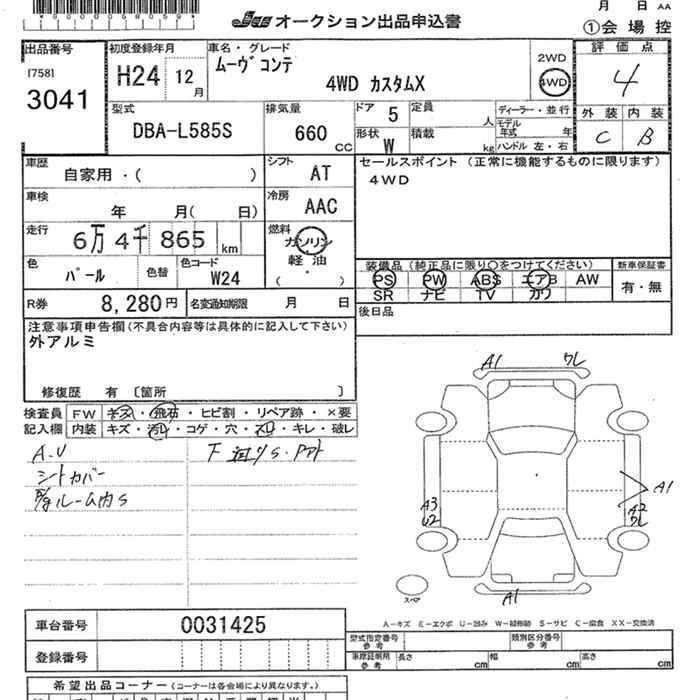 月 日 AA
JAA オークション出品申込書
①会場控
出品番号
[758]
3041
初度登録年月
H24 12月
車名・グレード
ムーヴコンテ
4WD カスタムX
2WD
4WD
評価点
4
外装 内装
C B
型式
DBA-L585S
排気量
660 CC
ドア 5
形状 W
定員 人
積載 kg
ディーラー・並行
モデル年式 年
ハンドル 左・右
車歴
自家用・( )
シフト AT
セールスポイント (正常に機能するものに限ります)
4WD
車検
年 月( 日)
冷房 AAC
走行
6万4千865 km
燃料
ガソリン
軽油
( )
色
パール
色替
色コード
W24
装備品 (純正品に限り○をつけてください)
PS PW ABS エアB AW
SR ナビ TV カワ
新車保証書
有・無
R券 8,280円
名変通知期限 月 日
後日品
注意事項申告欄(不具合内容等は具体的に記入して下さい)
外アルミ
修復歴 有 〔箇所 〕
検査員 FW キズ・飛石・ヒビ割・リペア跡・×要
記入欄 内装 キズ・汚レ・コゲ・穴・スレ・キレ・破レ
A.U
シートカバー
ルーム内S
A1 ワレ
A1
A3
U2
A2
ワレ
A1
スペア
A－キズ E－エクボ U－凹み W－補修跡 S－サビ C－腐食 XX－交換済
車台番号 0031425
登録番号
型式指定番号
参考
類別区分番号
参考
車庫証明用
参考
長さ cm 幅 cm 高さ cm
希望出品コーナー (コーナーは各会場により異なります。)